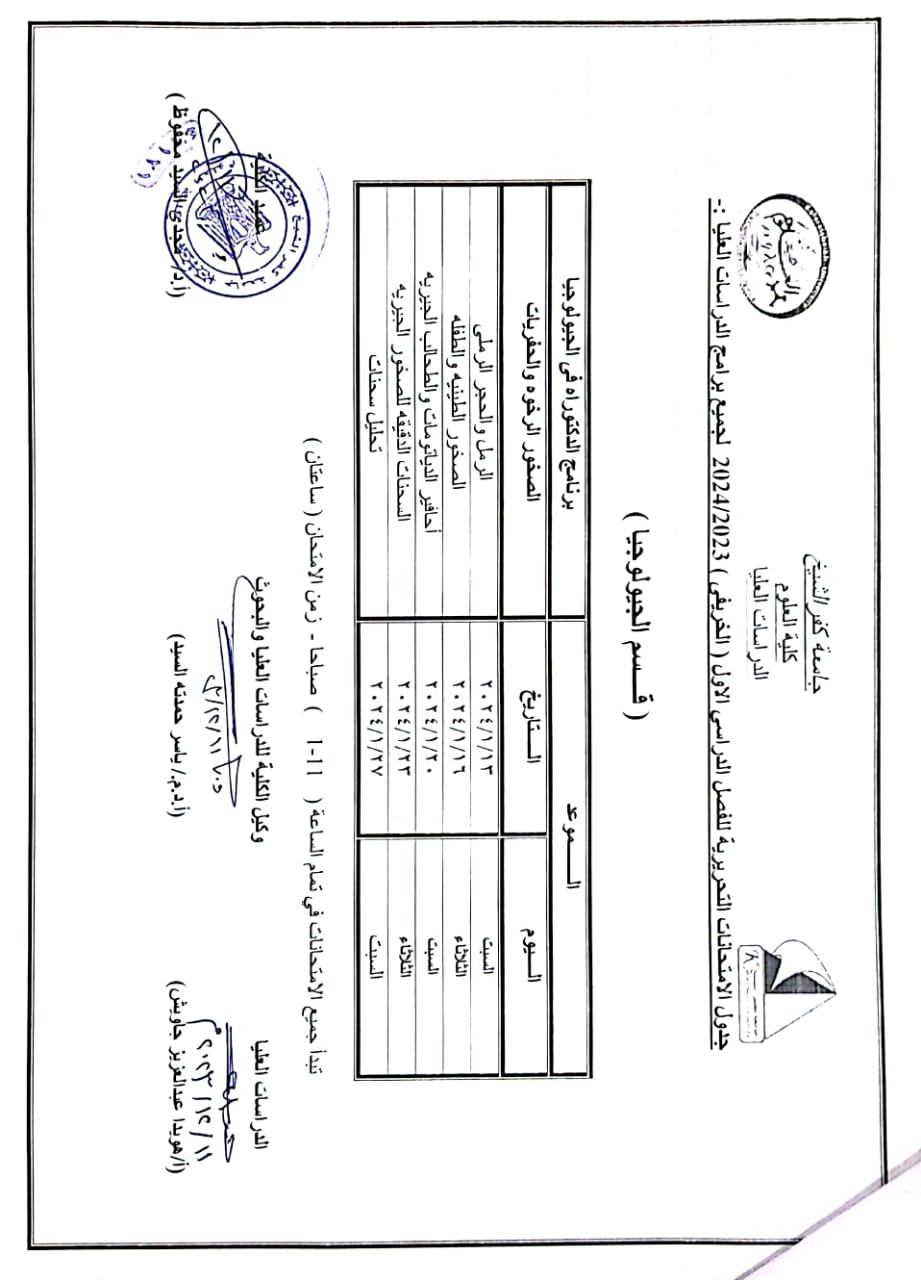 جامعة كفر الشيخ
كلية العلوم
الدراسات العليا
جدول الامتحانات التحريرية للفصل الدراسي الاول ( الخريفى ) 2024/2023 لجميع برامج الدراسات العليا :-
( قـــسم الجيولوجيا )
اليـــوم الـــتاريخ الـــموعد برنامج الدكتوراه فى الجيولوجيا
الصخور الرخوه والحفريات
السبت ٢٠٢٤/١/١٣ الرمل والحجر الرملى
الثلاثاء ٢٠٢٤/١/١٦ الصخور الطينيه والطفله
السبت ٢٠٢٤/١/٢٠ أحافير الدياتومات والطحالب الجيريه
الثلاثاء ٢٠٢٤/١/٢٣ السحنات الدقيقه للصخور الجيريه
السبت ٢٠٢٤/١/٢٧ تحليل سحنات
تبدأ جميع الامتحانات في تمام الساعة ( 11-1 ) صباحا - زمن الامتحان ( ساعتان )
الدراسات العليا وكيل الكلية للدراسات العليا والبحوث عميد الكلية
٢٠٢٣/١٢/١١
(أ/هويدا عبدالعزيز جاويش) (أ.د.م./ ياسر حمدته السيد) (أ.د/ مجدى السيد محفوظ )